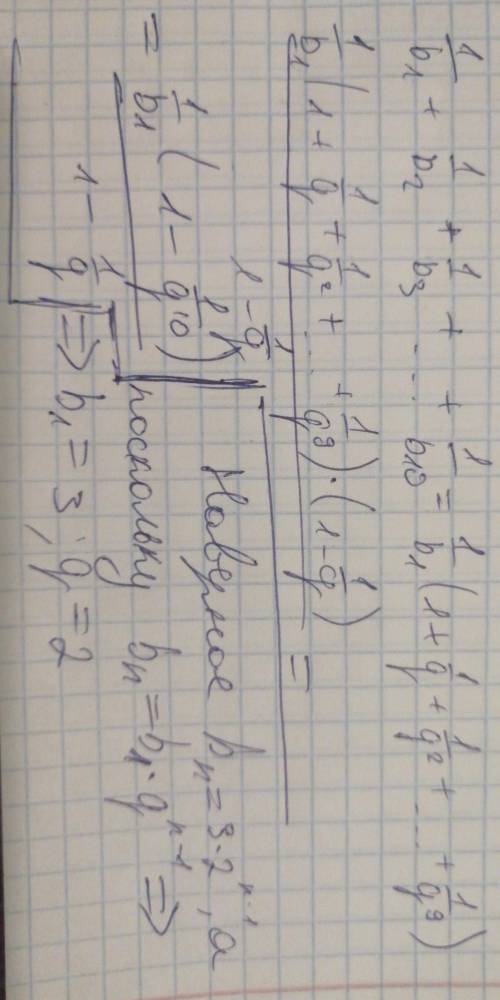 1/b₁ + 1/b₂ + 1/b₃ + ... + 1/b₁₀ = 1/b₁ (1 + 1/q + 1/q² + ... + 1/q⁹)
1/b₁ (1 + 1/q + 1/q² + ... + 1/q⁹) · (1 - 1/q)
1 - 1/q
=
= 1/b₁ (1 - 1/q¹⁰)
1 - 1/q
Наверное bₙ = 3·2ⁿ⁻¹, а
поскольку bₙ = b₁·qⁿ⁻¹ =>
=> b₁ = 3, q = 2